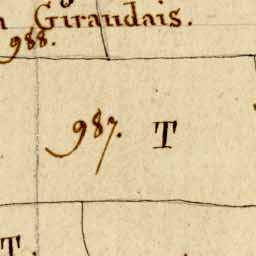 Giraudais.
988.
987. T
T.